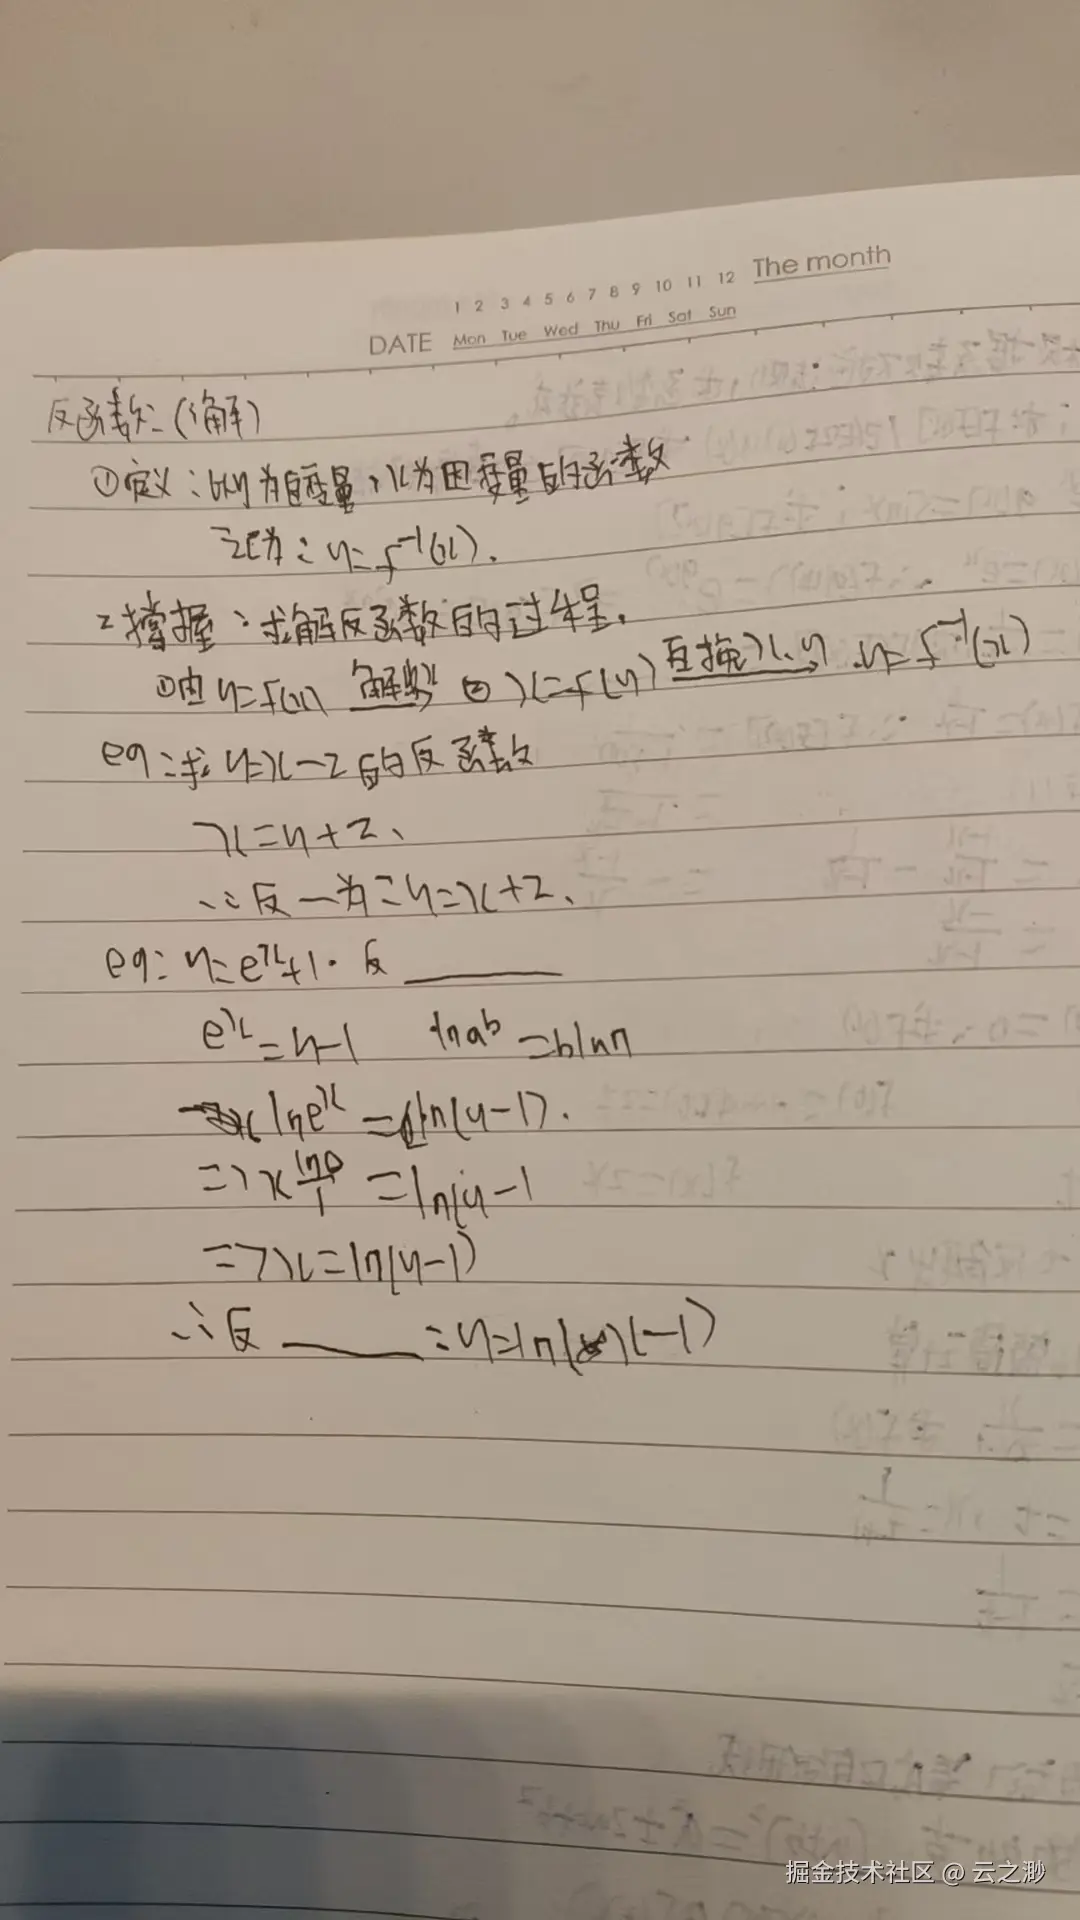 1 2 3 4 5 6 7 8 9 10 11 12 The month
DATE Mon Tue Wed Thu Fri Sat Sun
反函数:(解)
①定义:以y为自变量,x为因变量的函数
记为:y=f⁻¹(x).
2 撑握:求解反函数的过程.
①由y=f(x) 解出 ② x=f(y) 互换x、y y=f⁻¹(x)
eg:求y=x-2的反函数
x=y+2、
∴反一为:y=x+2、
eg:y=eˣ+1. 反______
eˣ=y-1 lnaᵇ=bln
lneˣ=ln(y-1).
=>x =ln(y-1
=>x=ln(y-1)
∴反______:y=ln(x-1)
掘金技术社区 @ 云之渺